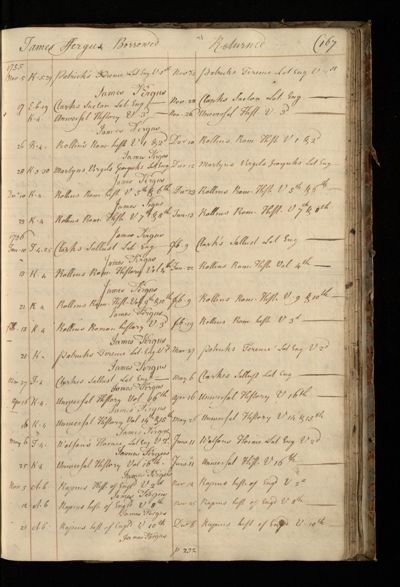 James Fergus Borrowed Returned (167
1755
Nov. 5 K. 5.29 Patricks Terence Lat Eng V Nov. 20 Patricks Terence Lat Eng V
James Fergus
17 E.6.19 Clarks Sueton Lat Eng Nov. 28 Clarks Sueton Lat Eng
K.4 Universal History V. 3d Nov. 26 Universal Hist. V 3d
James Fergus
26 K.4 Rollins Rom. hist V 1 & 2d Decr 10 Rollins Rom. Hist V 1 & 2d
James Fergus
28 K.3.30 Martyns Virgels Georgicks Lat Eng Decr 12 Martyns Virgels Georgicks Lat Eng
James Fergus
Decr 10 K.4. Rollins Rom. hist. V 5th & 6th Decr 23 Rollins Rom. Hist V 5th & 6th
James Fergus
23 K.4 Rollins Rom. Hist V 7th & 8th Jan. 13 Rollins Rom. Hist. V 7th & 8th
1756 James Fergus
Jan. 10 F.4.25 Clarks Sallust Lat Eng Feb. 9 Clarks Sallust Lat Eng
James Fergus
13 K.4 Rollins Rom. History Vol 4th Jan. 22 Rollins Rom. Hist. Vol 4th
James Fergus
21 K.4 Rollins Rom. Hist. Vol 9th & 10th Feb. 9 Rollins Rom. Hist. V. 9 & 10th
James Fergus
Feb. 13 K.4 Rollins Roman history V 3d Feb. 19 Rollins Rom hist. V 3d
James Fergus
21 K. Patricks Terence Lat Eng V 2d Mar. 27 Patricks Terence Lat Eng V 2d
James Fergus
Mar. 27 F.4 Clarkes Sallust Lat Eng May 6 Clarkes Sallust Lat Eng
James Fergus
Apr. K.4 Universal History Vol. 16th Apr. 16 Universal History V 16th
James Fergus
16 K.4 Universal History Vol 14 & 15th May 25 Universal History V 14 & 15th
James Fergus
May 6 F.4. Watsons Horace Lat Eng V 2d June 11 Watsons Horace Lat Eng V 2d
James Fergus
25 K.4 Universal History Vol 16th June 11 Universal Hist V 16th
James Fergus
Nov. 5 A.6 Rapins Hist of Engd V 3d Nov. 12 Rapins hist of Engd V 3d
James Fergus
12 A.6 Rapins hist of Engd V 8th Rapins hist of Engd V 8th
James Fergus
A.6 Rapins hist of Engd V 10th Decr 8 Rapins hist of Engd V. 10th
James Fergus
p 232